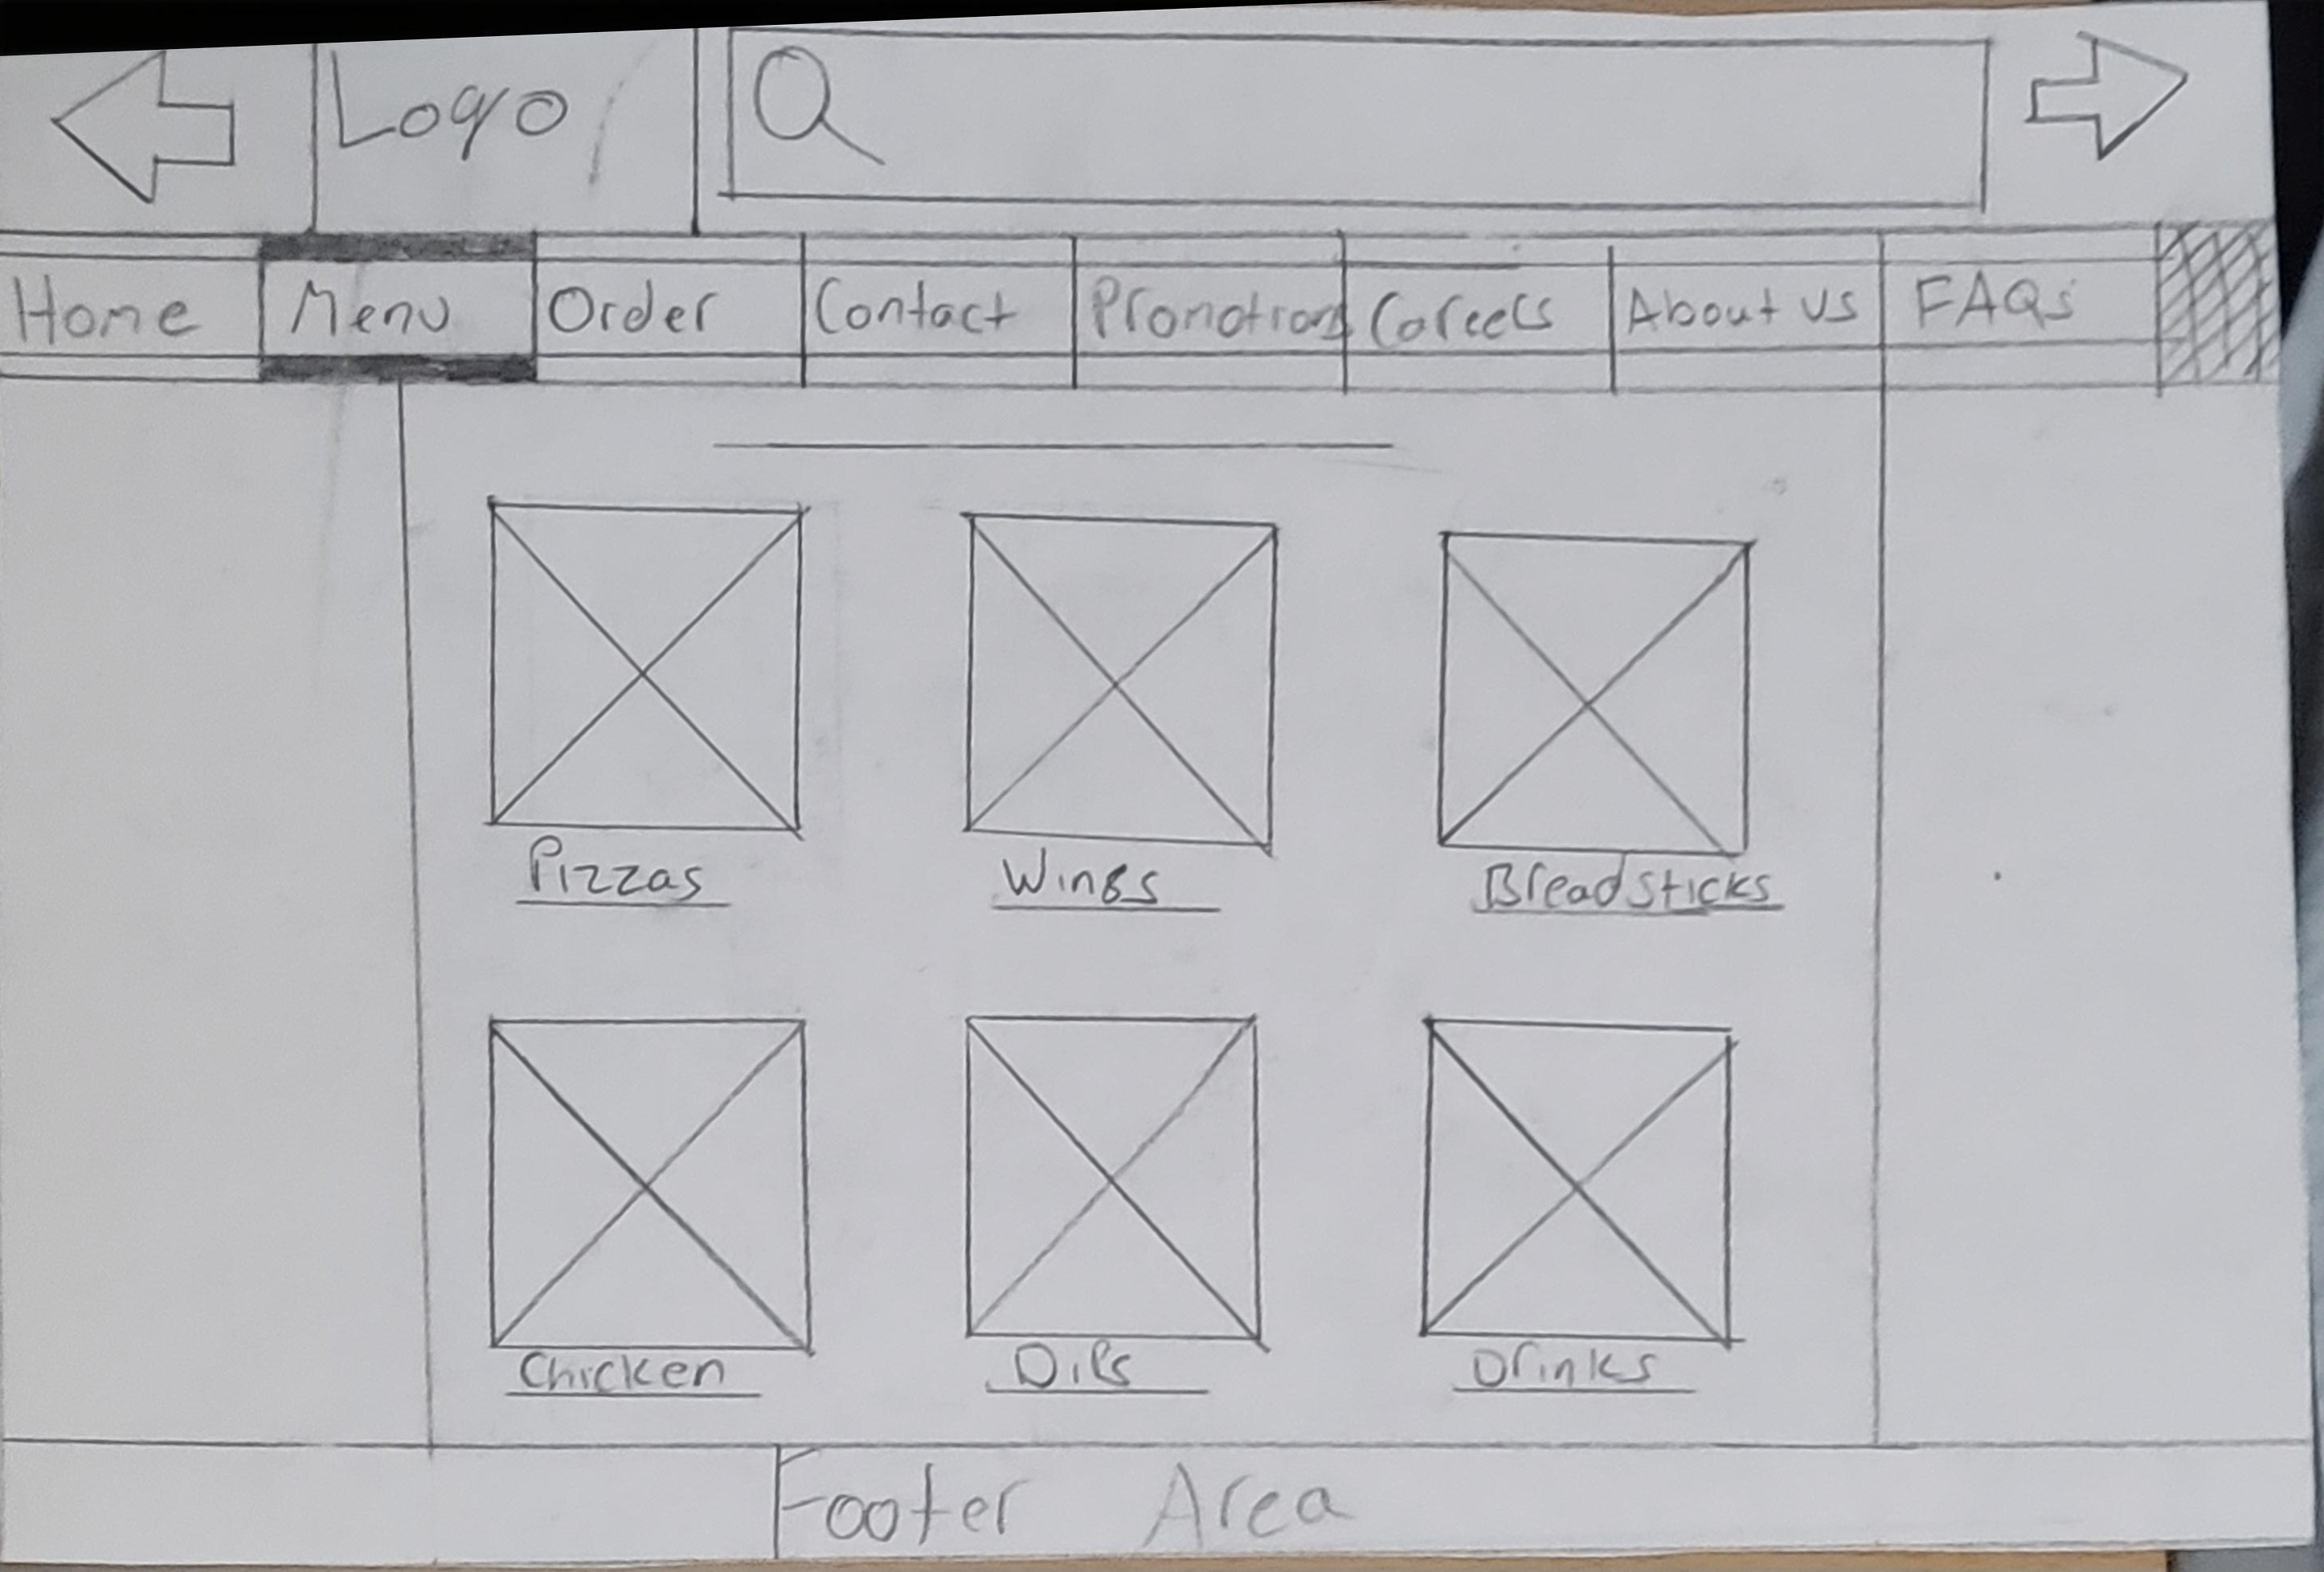 Logo
Home Menu Order Contact Promotions Careers About us FAQs
Pizzas Wings Breadsticks
Chicken Dips Drinks
Footer Area